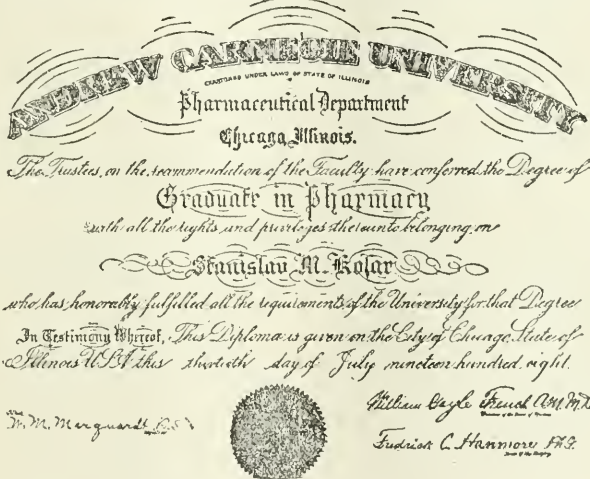 ANDREW CARNEGIE UNIVERSITY
CHARTERED UNDER LAWS OF STATE OF ILLINOIS
Pharmaceutical Department
Chicago, Illinois.
The Trustees, on the recommendation of the Faculty have conferred the Degree of
Graduate in Pharmacy
with all the rights and privileges thereunto belonging on
Stanislav M. Kolar
who has honorably fulfilled all the requirements of the University for that Degree
In Testimony Whereof, This Diploma is given on the City of Chicago, State of
Illinois U.S.A. this thirtieth day of July nineteen hundred eight.
William Gayle French A.M. M.D.
W. M. Marquardt
Fredrick C. Hanmore